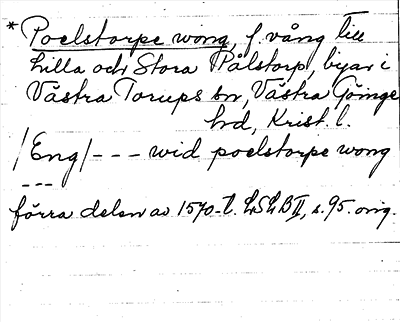 * Poelstorpe wong, f. vång till
Lilla och Stora Pålstorp, byar i
Västra Torups sn, Västra Göinge
hd, Krist. l.
/Eng/ - - - wid poelstorpe wong
- - -
förra delen av 1570-t. LSLB II, s. 95. orig.